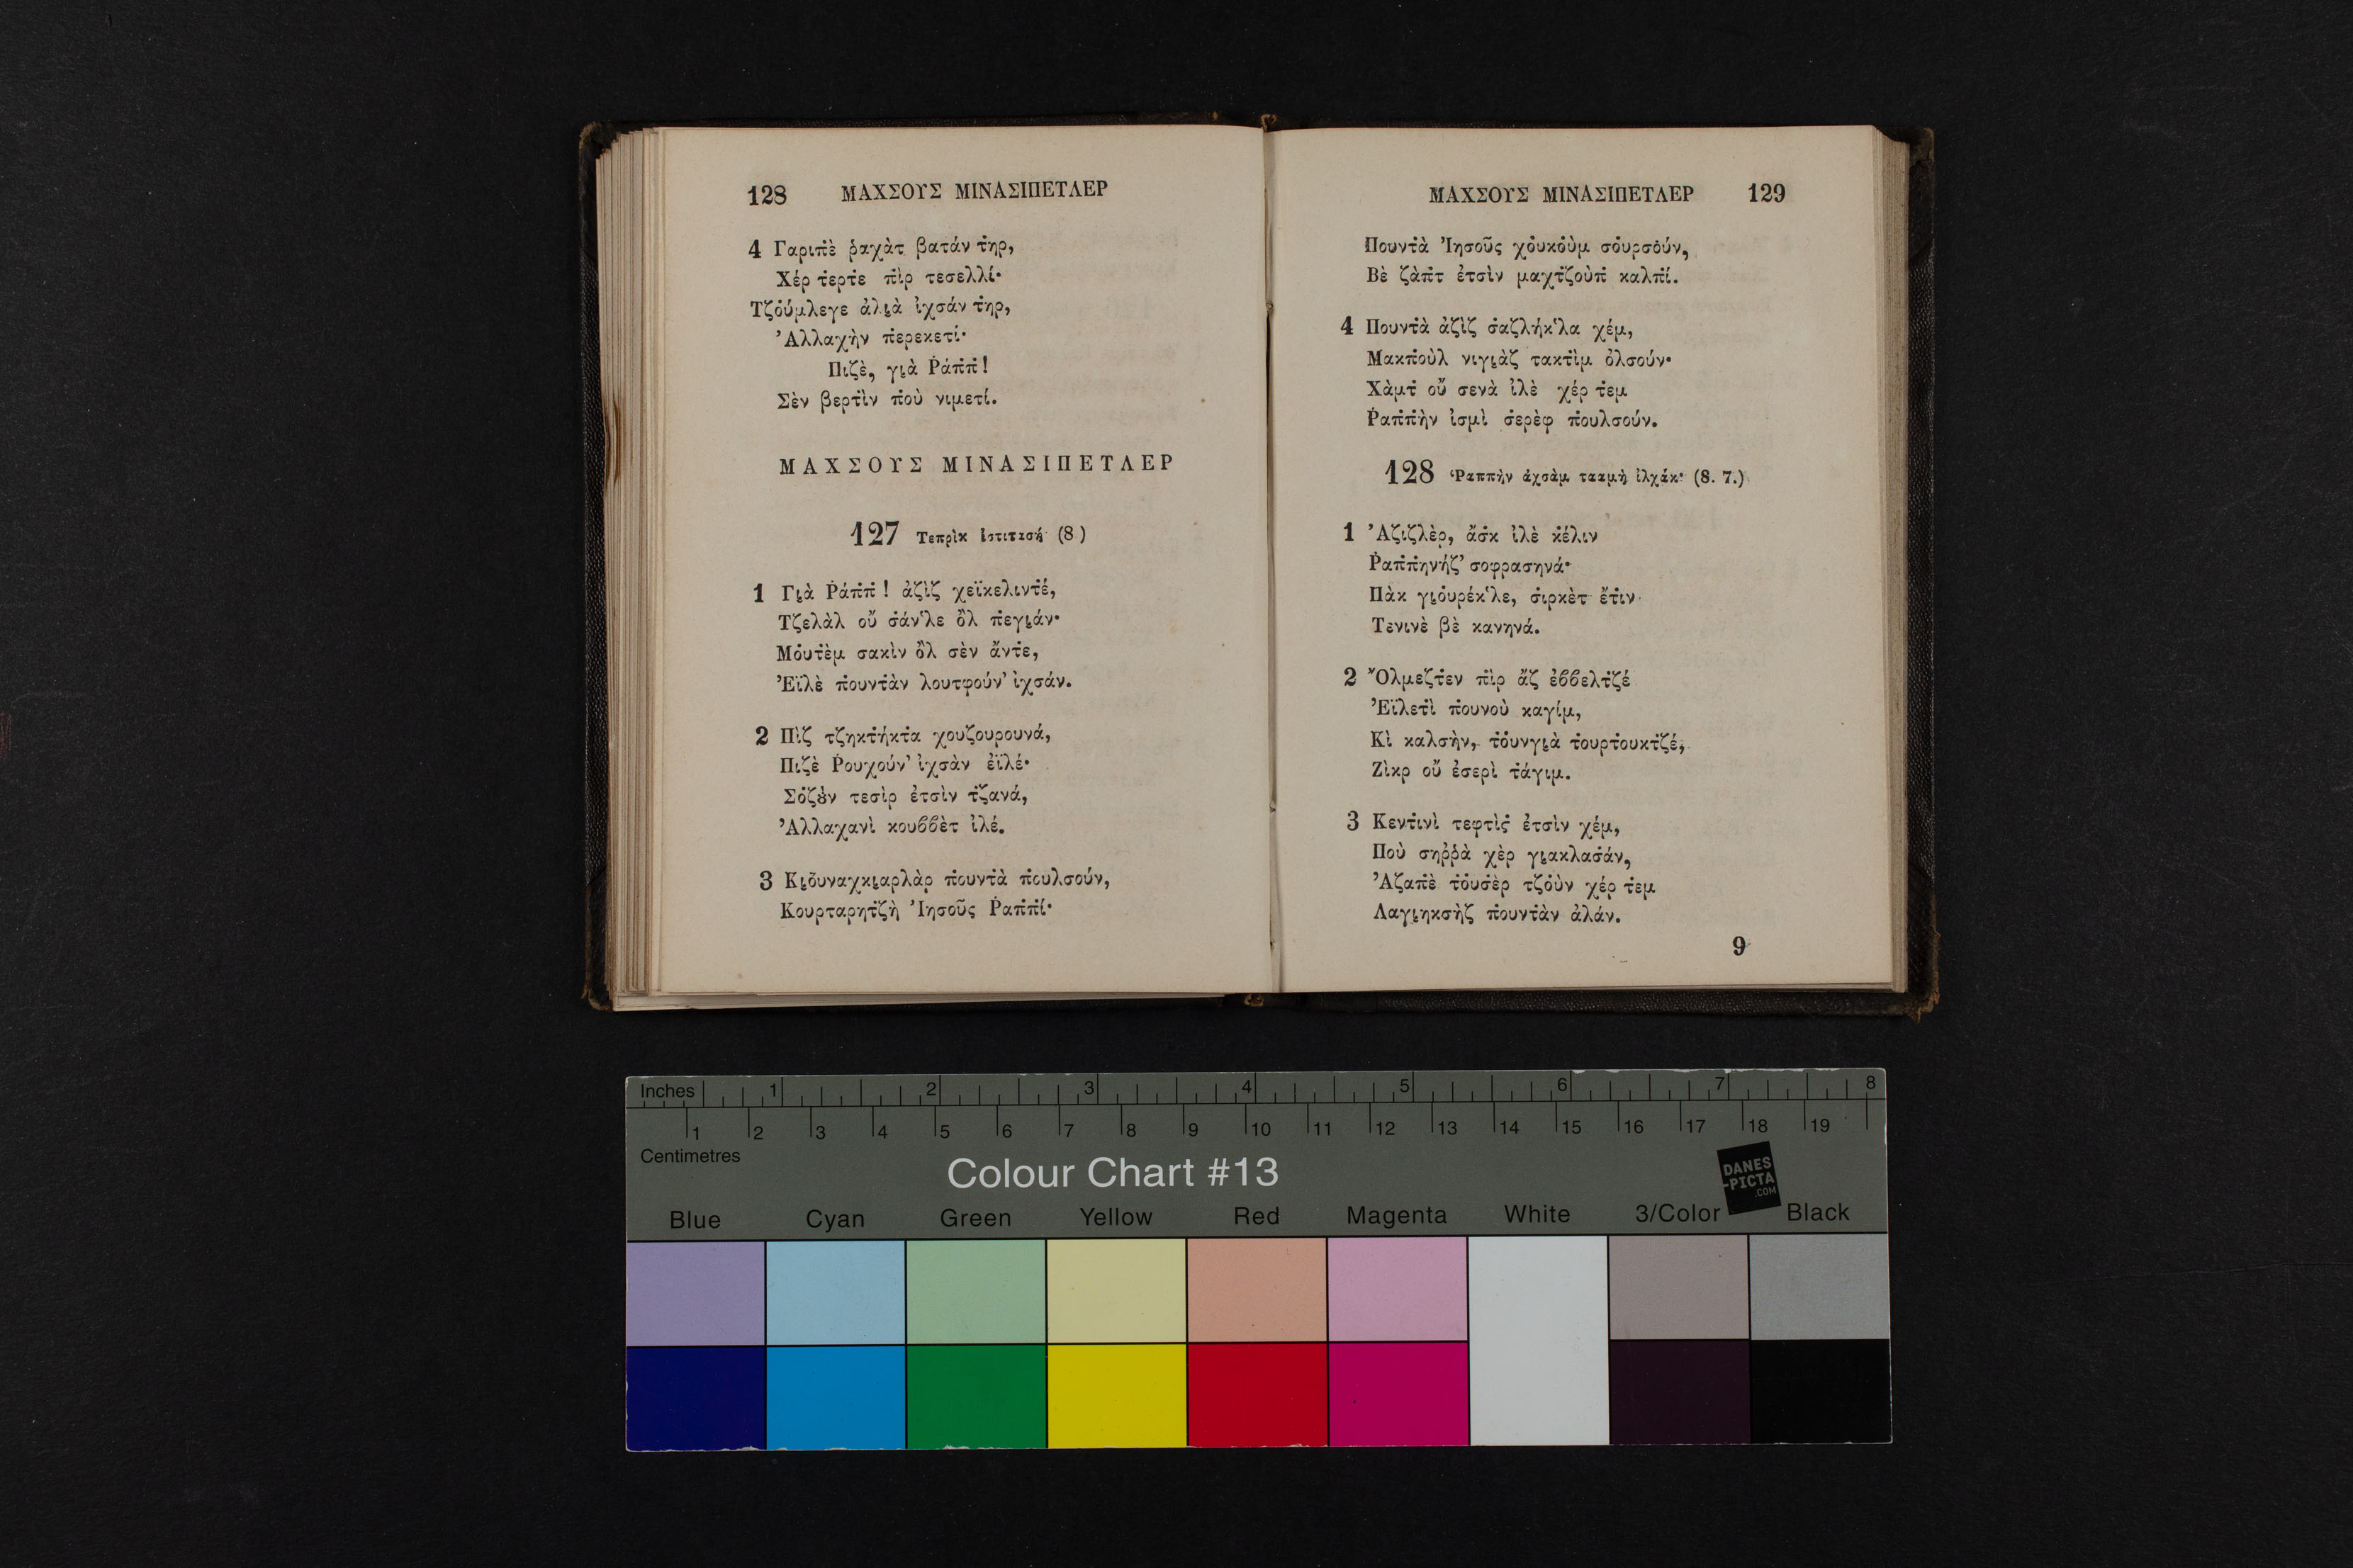 128 ΜΑΧΣΟΥΣ ΜΙΝΑΣΙΠΕΤΛΕΡ
4 Γαριπ̇ὲ ῥαχὰτ βατάν τ̇ηρ,
Χέρ τ̇ερτε π̇ὶρ τεσελλί·
Τζο̇ύμλεγε ἀλι̯ὰ ἰχσάν τ̇ηρ,
Ἀλλαχὴν π̇ερεκετί·
Πιζὲ, γι̯ὰ Ῥάπ̇π̇!
Σὲν βερτ̇ὶν π̇οὺ νιμετί.
ΜΑΧΣΟΥΣ ΜΙΝΑΣΙΠΕΤΛΕΡ
127 Τεπρὶκ ἰστιτασή (8)
1 Γι̯ὰ Ῥάπ̇π̇! ἀζὶζ χεϊκελιντ̇έ,
Τζελὰλ οὔ σ̇άν‛λε ὂλ π̇εγι̯άν·
Μο̇υτ̇ὲμ σακὶν ὂλ σὲν ἄντ̇ε,
Ἐϊλὲ π̇ουντ̇ὰν λουτφούν' ἰχσάν.
2 Πὶζ τζηκτ̇ήκτ̇α χουζουρουνά,
Πιζὲ Ῥουχούν' ἰχσὰν ἐϊλέ·
Σο̇ζο̇ὺν τεσὶρ ἐτσὶν τ̇ζανά,
Ἀλλαχανὶ κουϐϐὲτ ἰλέ.
3 Κι̯ο̇υναχκι̯αρλὰρ π̇ουντ̇ὰ π̇ουλσούν,
Κουρταρητ̇ζὴ Ἰησοῦς Ῥαπ̇π̇ί·
ΜΑΧΣΟΥΣ ΜΙΝΑΣΙΠΕΤΛΕΡ 129
Πουντ̇ὰ Ἰησοῦς χο̇υκο̇ὺμ σο̇υρσο̇ύν,
Βὲ ζὰπ̇τ ἐτσὶν μαχτ̇ζοὺπ̇ καλπ̇ί.
4 Πουντ̇ὰ ἀζὶζ σ̇αζλήκ‛λα χέμ,
Μακπ̇οὺλ νιγι̯ὰζ τακτ̇ὶμ ὀλσούν·
Χὰμτ̇ οὔ σενὰ ἰλὲ χέρ τ̇εμ
Ῥαπ̇π̇ὴν ἰσμὶ σ̇ερὲφ π̇ουλσούν.
128 Ῥαππὴν ἀχσὰμ τααμὴ ἰλχάκ· (8. 7.)
1 Ἀζιζλὲρ, ἄσ̇κ ἰλὲ κ̇έλιν
Ῥαπ̇π̇ηνήζ' σοφρασηνά·
Πὰκ γι̯ο̇υρέκ‛λε, σ̇ιρκὲτ ἔτ̇ιν
Τενινὲ βὲ κανηνά.
2 Ὄλμεζτ̇εν π̇ὶρ ἄζ ἐϐϐελτ̇ζέ
Ἐϊλετ̇ὶ π̇ουνοὺ καγίμ,
Κὶ καλσὴν, τ̇ο̇υνγι̯ὰ τ̇ουρτ̇ουκτ̇ζέ,
Ζὶκρ οὔ ἐσερὶ τ̇άγιμ.
3 Κεντ̇ινὶ τεφτὶς ἐτσὶν χέμ,
Ποὺ σηῤῥὰ χὲρ γι̯ακλασ̇άν,
Ἀζαπ̇ὲ τ̇ο̇υσ̇ὲρ τζο̇ὺν χέρ τ̇εμ
Λαγι̯ηκσὴζ π̇ουντ̇ὰν ἀλάν.
9
Inches 1 2 3 4 5 6 7 8
1 2 3 4 5 6 7 8 9 10 11 12 13 14 15 16 17 18 19
Centimetres
Colour Chart #13
DANES
-PICTA
.COM
Blue Cyan Green Yellow Red Magenta White 3/Color Black